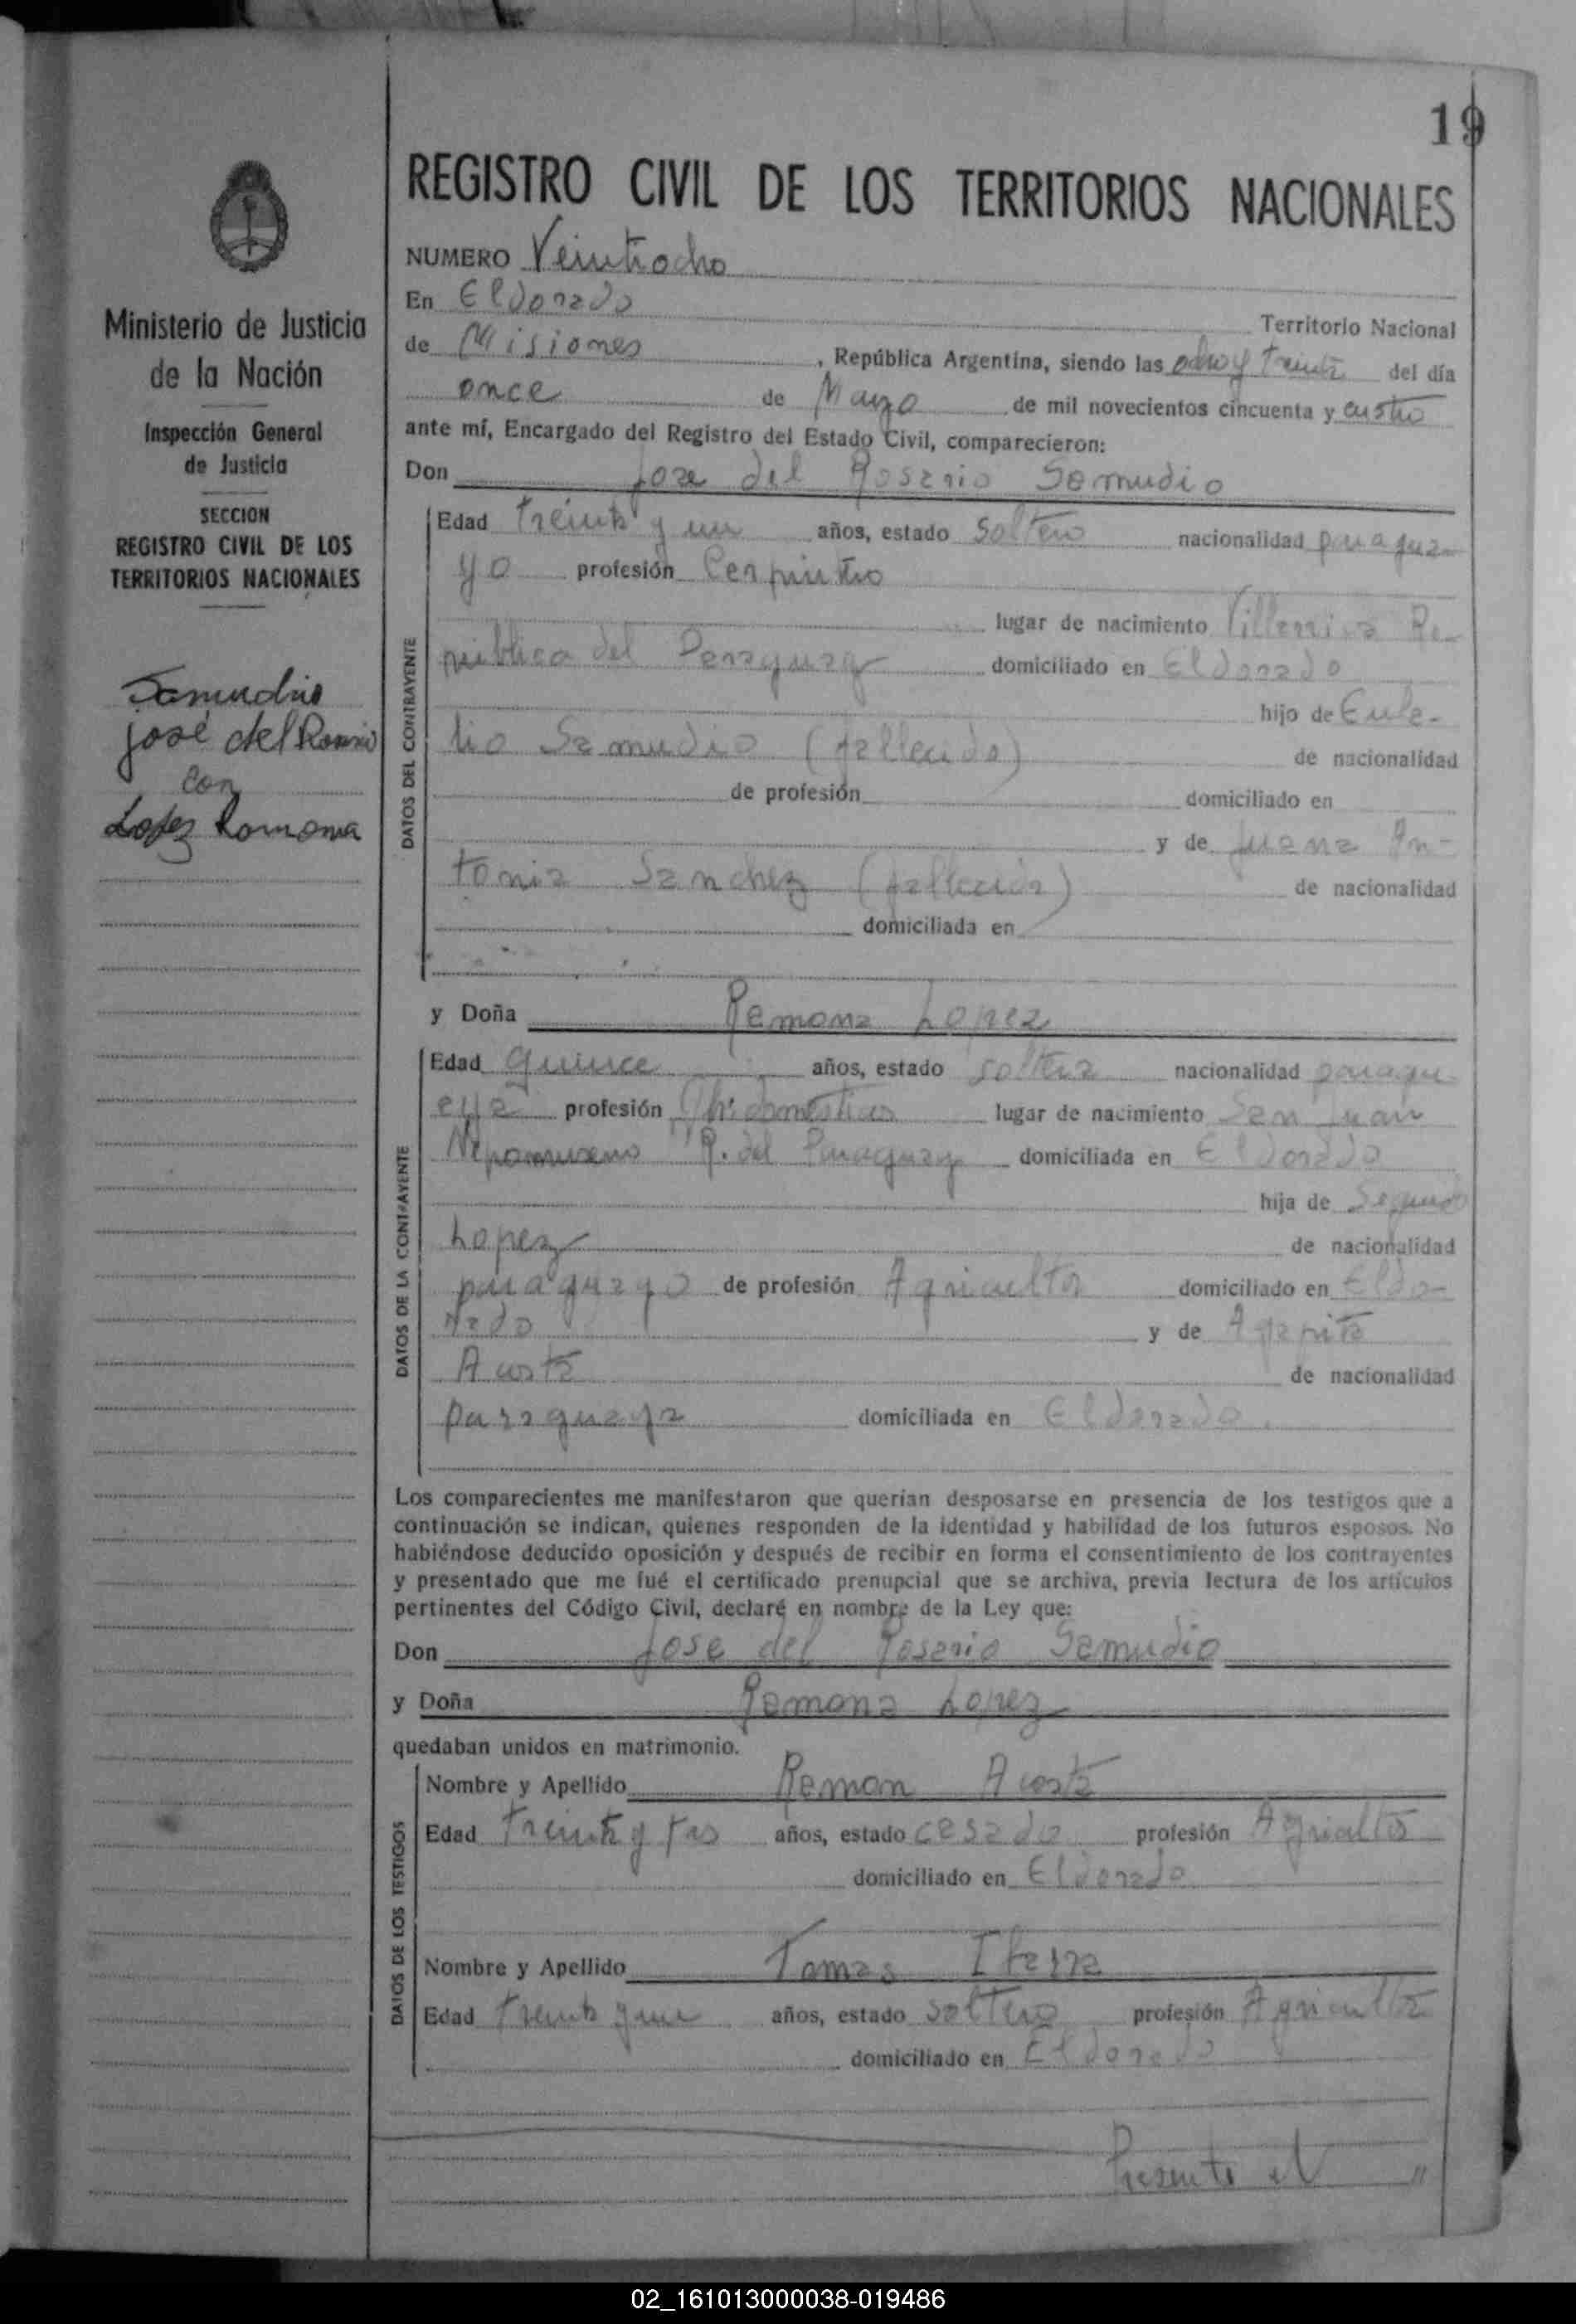 19
REGISTRO CIVIL DE LOS TERRITORIOS NACIONALES
NUMERO Veintiocho
En Eldorado Territorio Nacional
de Misiones, República Argentina, siendo las ocho y treinta del día
once de Marzo de mil novecientos cincuenta y cuatro
ante mí, Encargado del Registro del Estado Civil, comparecieron:
Don Jose del Rosario Samudio
DATOS DEL CONTRAYENTE
Edad treinta y un años, estado soltero nacionalidad paragua-
yo profesión Carpintero
lugar de nacimiento Villarrica Re-
pública del Paraguay domiciliado en Eldorado
hijo de Eula-
lio Samudio (fallecido) de nacionalidad
de profesión domiciliado en
y de Juana An-
tonia Sanchez (fallecida) de nacionalidad
domiciliada en
y Doña Ramona Lopez
DATOS DE LA CONTRAYENTE
Edad quince años, estado soltera nacionalidad paragu-
aya profesión domesticas lugar de nacimiento San Juan
Nepomuseno R. del Paraguay domiciliada en Eldorado
hija de Segundo
Lopez de nacionalidad
paraguayo de profesión Agricultor domiciliado en Eldo-
rado y de Agapita
Acosta de nacionalidad
paraguaya domiciliada en Eldorado.
Los comparecientes me manifestaron que querían desposarse en presencia de los testigos que a
continuación se indican, quienes responden de la identidad y habilidad de los futuros esposos. No
habiéndose deducido oposición y después de recibir en forma el consentimiento de los contrayentes
y presentado que me fué el certificado prenupcial que se archiva, previa lectura de los artículos
pertinentes del Código Civil, declaré en nombre de la Ley que:
Don Jose del Rosario Samudio
y Doña Ramona Lopez
quedaban unidos en matrimonio.
DATOS DE LOS TESTIGOS
Nombre y Apellido Ramon Acosta
Edad treinta y tres años, estado casado profesión Agricultor
domiciliado en Eldorado
Nombre y Apellido Tomas
Edad treinta y un años, estado soltero profesión Agricultor
domiciliado en Eldorado
Presente
Ministerio de Justicia
de la Nación
Inspección General
de Justicia
SECCION
REGISTRO CIVIL DE LOS
TERRITORIOS NACIONALES
Samudio
José del Rosario
con
Lopez Ramona
02_161013000038-019486